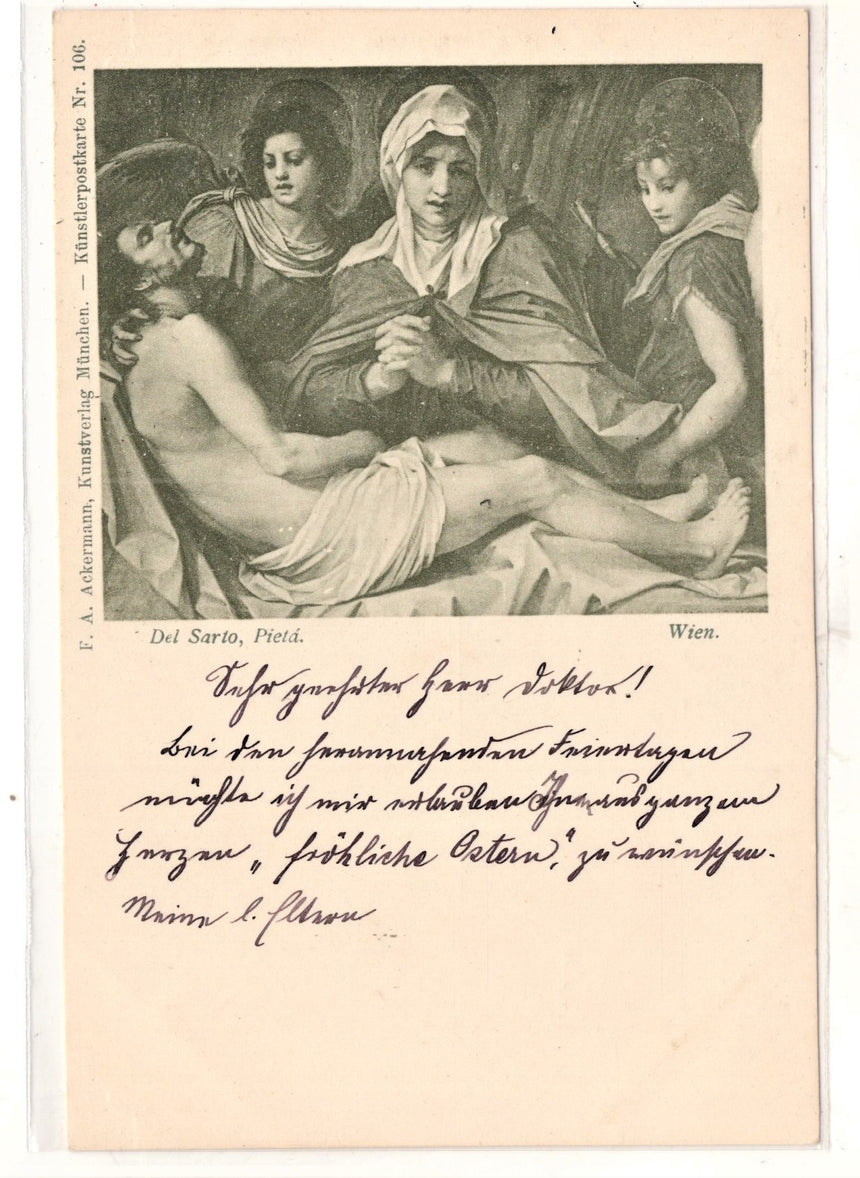 F. A. Ackermann, Kunstverlag München. — Künstlerpostkarte Nr. 106.
Del Sarto, Pietá.
Wien.
Sehr geehrter Herr Doktor!
Bei den herannahenden Feiertagen
möchte ich mir erlauben Ihnen aus ganzem
Herzen „fröhliche Ostern“, zu wünschen.
Meine l. Eltern